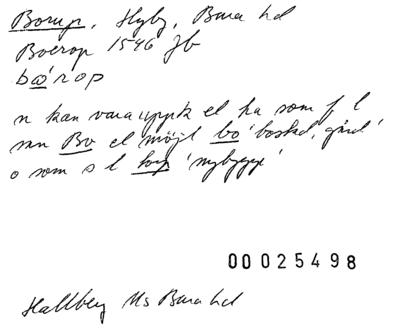 Borup, Hyby, Bara hd
Boerop 1546 Jb
bω'rop
n kan vara uppk el ha som f l
mn Bo el möjl bo 'bostad, gård'
o som s l torp 'nybygge'
00025498
Hallberg Us Bara hd